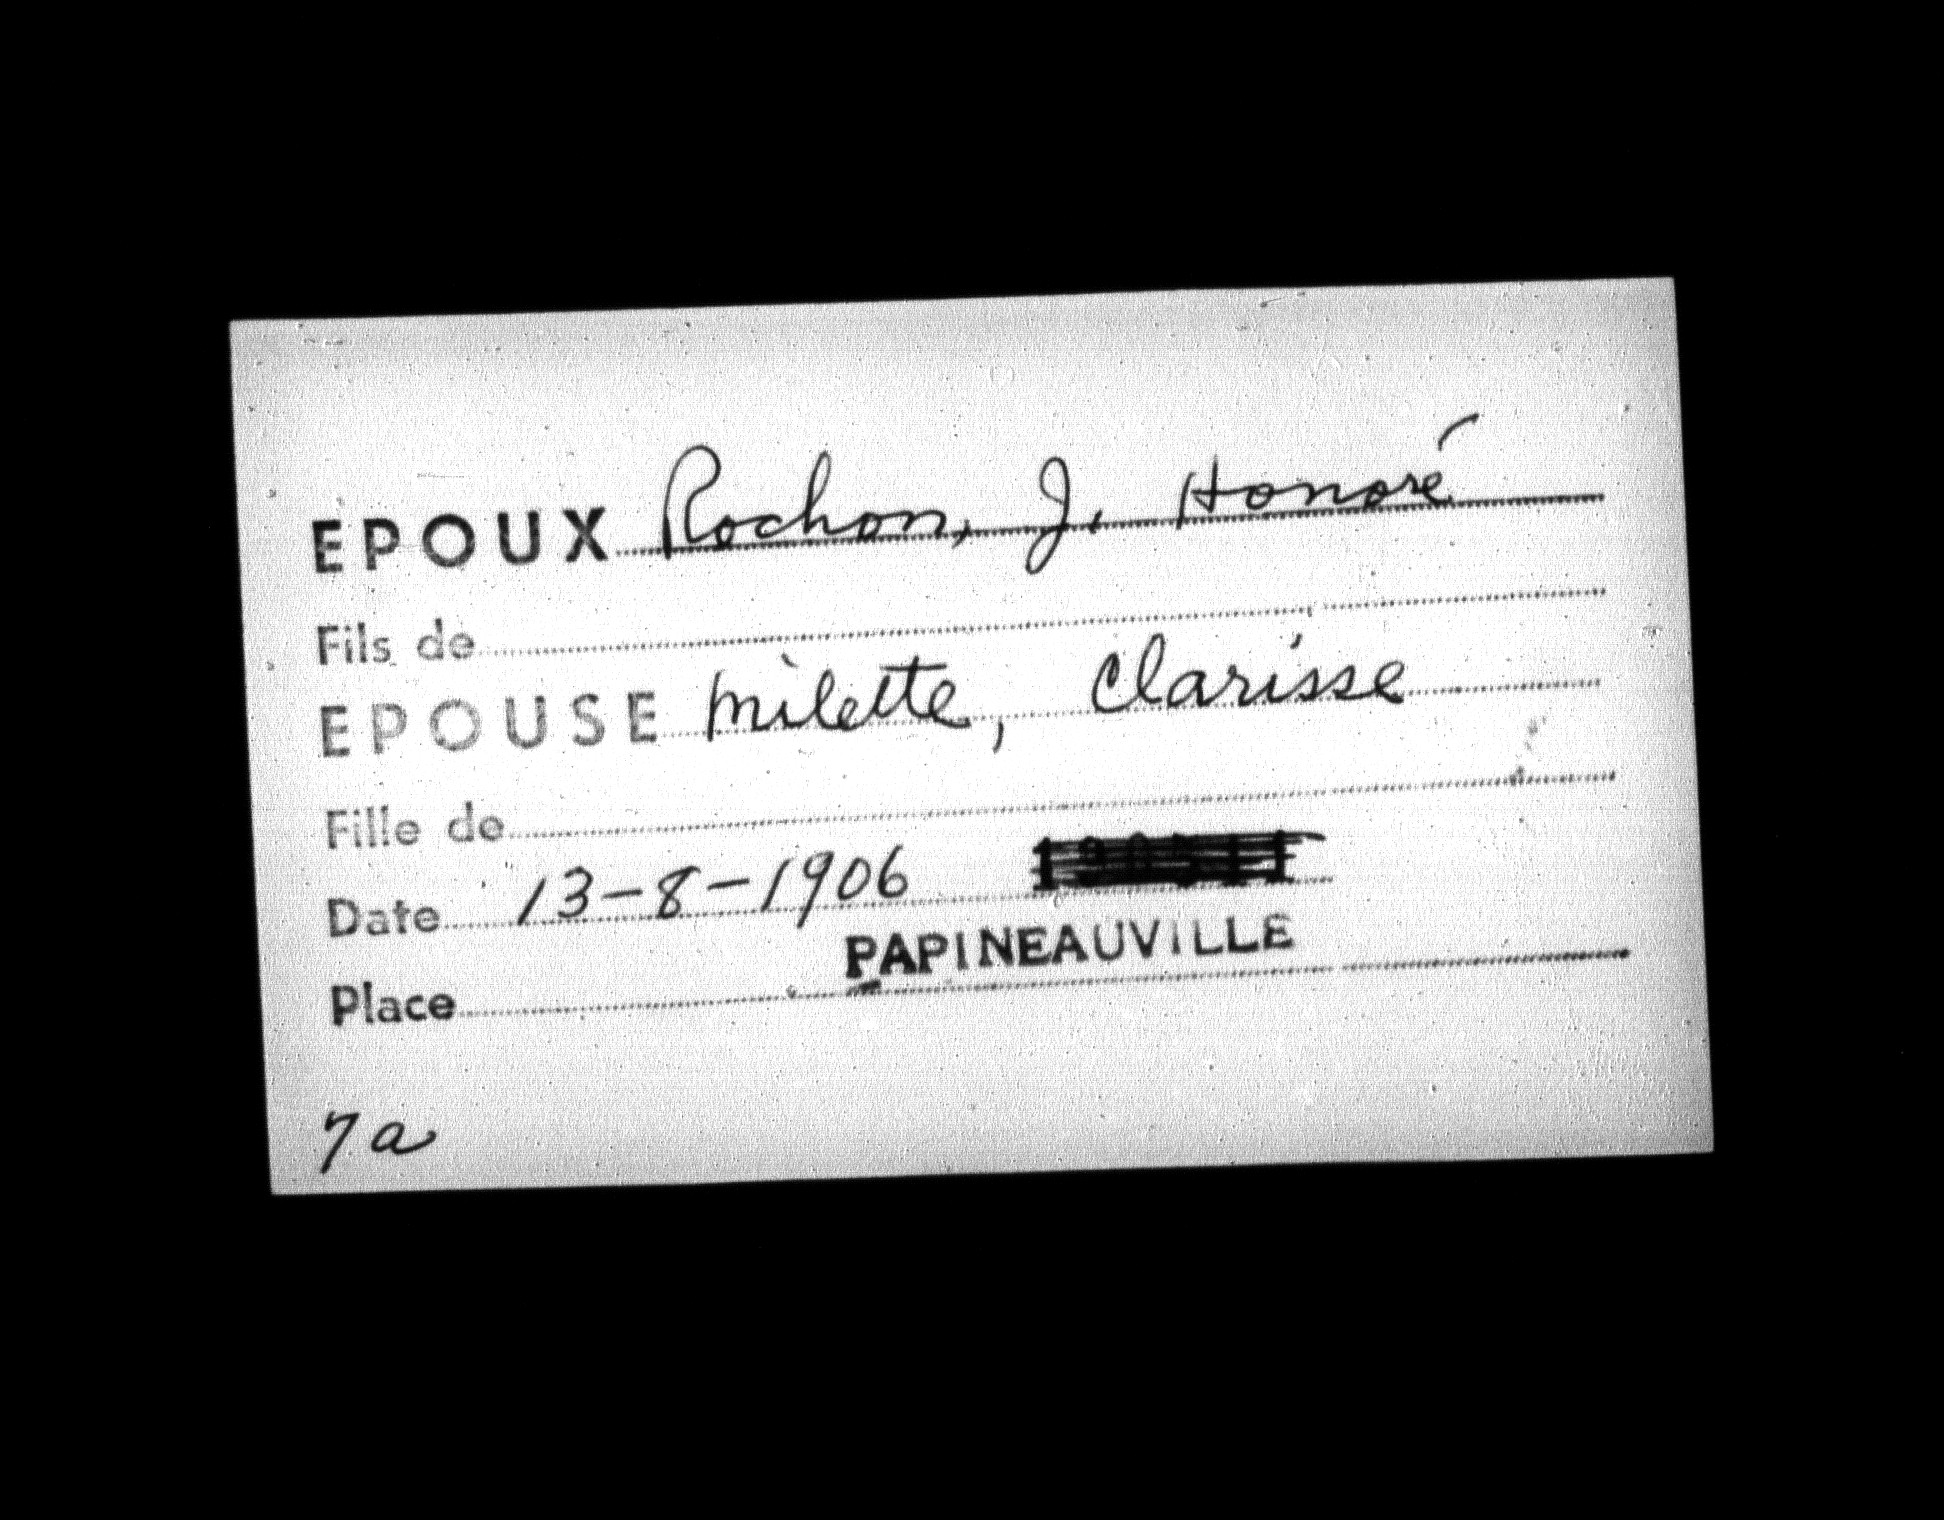 EPOUX Rochon, J. Honoré
Fils de
EPOUSE Milette, Clarisse
Fille de
Date 13-8-1906
PAPINEAUVILLE
Place
7a